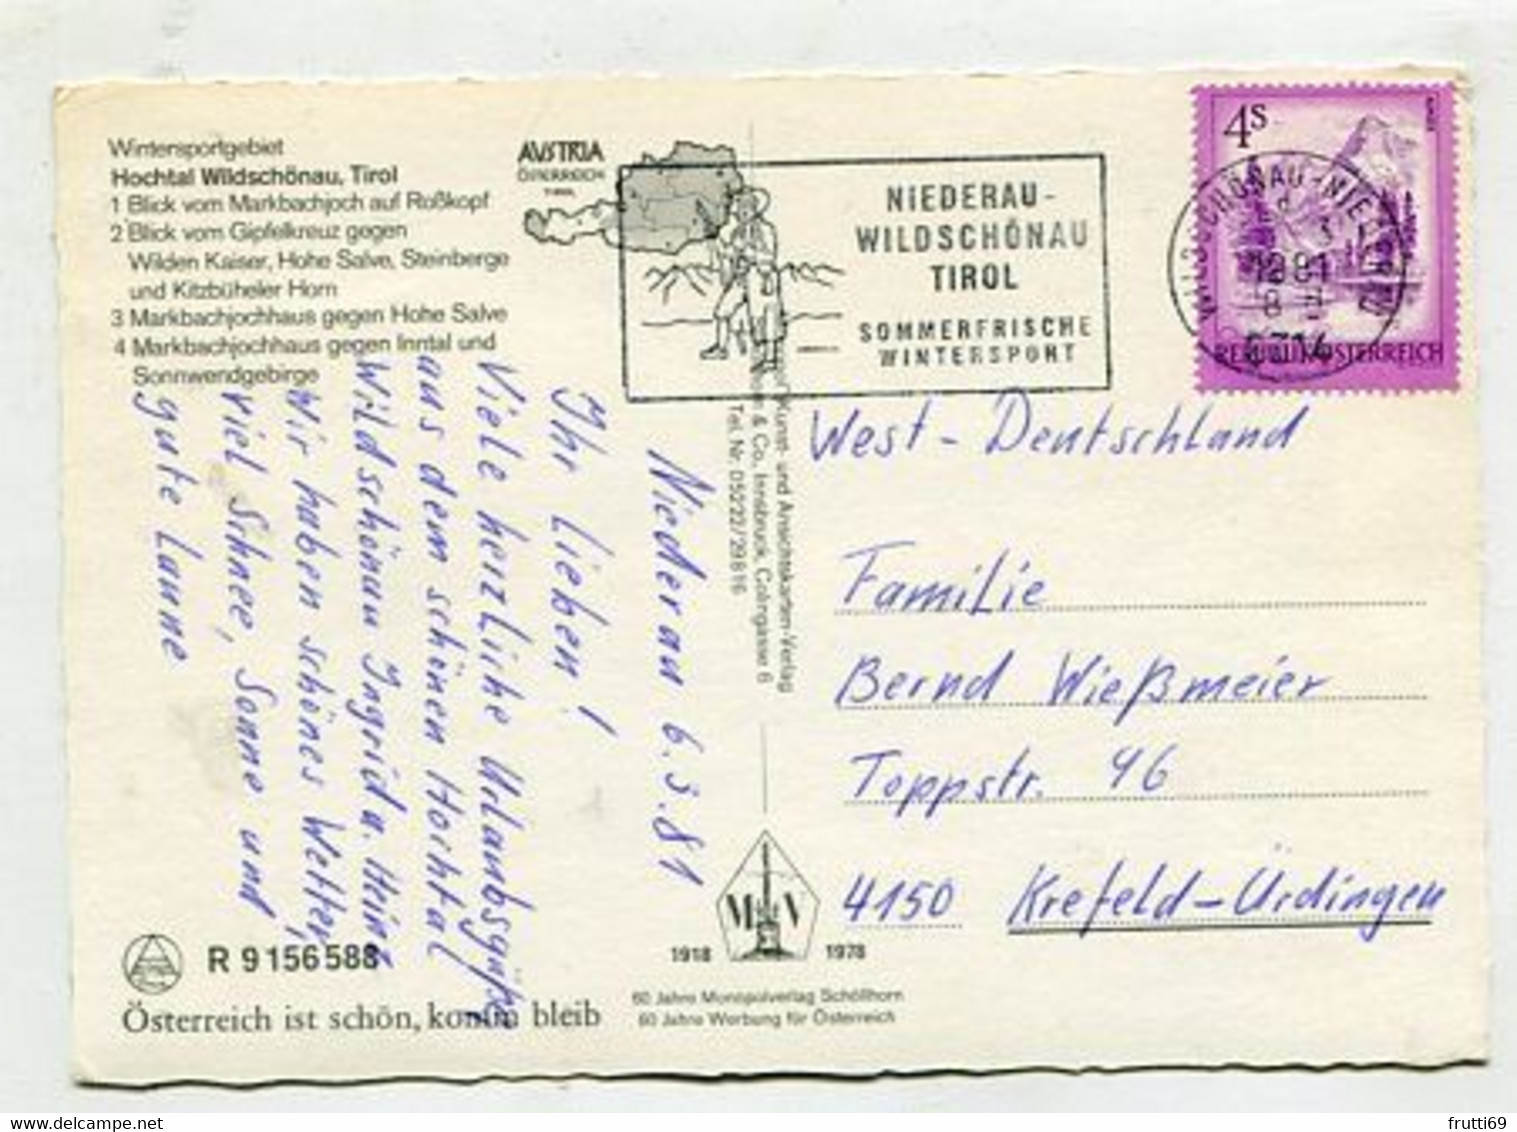 Wintersportgebiet
Hochtal Wildschönau, Tirol
1 Blick vom Markbachjoch auf Roßkopf
2 Blick vom Gipfelkreuz gegen
Wilden Kaiser, Hohe Salve, Steinberge
und Kitzbüheler Horn
3 Markbachjochhaus gegen Hohe Salve
4 Markbachjochhaus gegen Inntal und
Sonnwendgebirge
AUSTRIA
ÖSTERREICH
TIROL
NIEDERAU-
WILDSCHÖNAU
TIROL
SOMMERFRISCHE
WINTERSPORT
4S
REPUBLIK ÖSTERREICH
WILDSCHÖNAU-NIEDERAU
1981
6314
Niederau 6.3.81
Ihr Lieben!
Viele herzliche Urlaubsgrüße
aus dem schönen Hochtal
Wildschönau Ingrid u. Heinz
Wir haben schönes Wetter,
viel Schnee, Sonne und
gute Laune
Kunst- und Ansichtskarten-Verlag
& Co, Innsbruck, Colingasse 6
Tel. Nr. 05222/29816
West-Deutschland
Familie
Bernd Wießmeier
Toppstr. 46
4150 Krefeld-Ürdingen
R 9156588
Österreich ist schön, komm bleib
M V
1918 1978
60 Jahre Monopolverlag Schöllhorn
60 Jahre Werbung für Österreich
frutti69